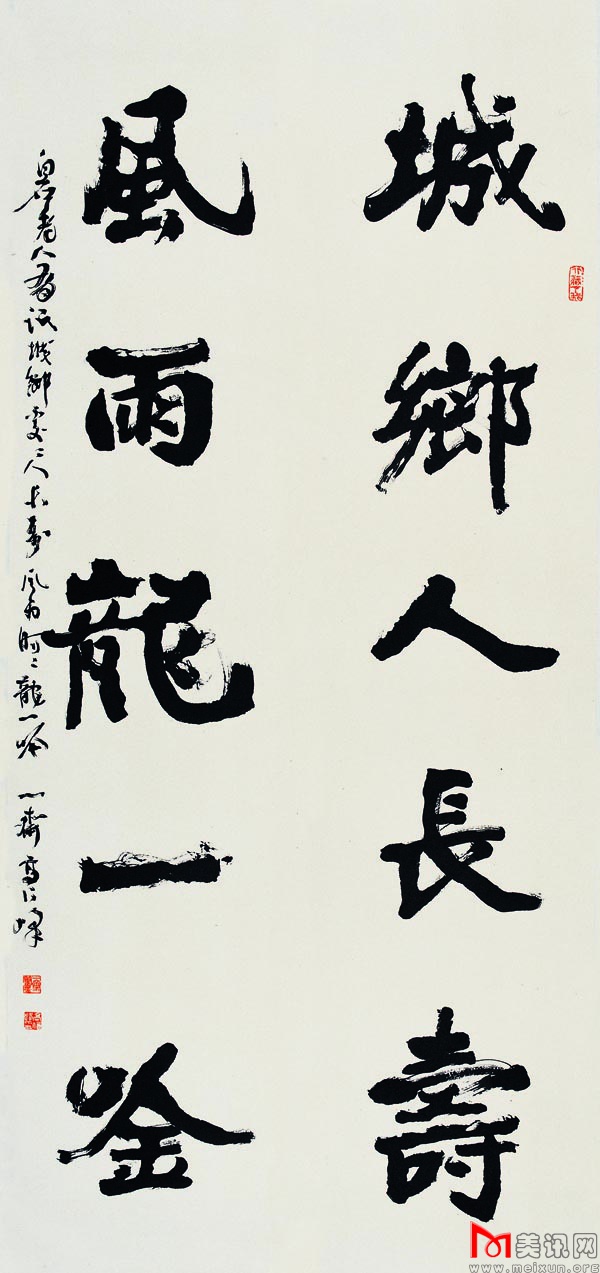 城鄉人長壽
風雨龍一唫
白石老人有 城鄉處〻人長壽風雨時〻龍一吟 齋 高
美讯网
www.meixun.org